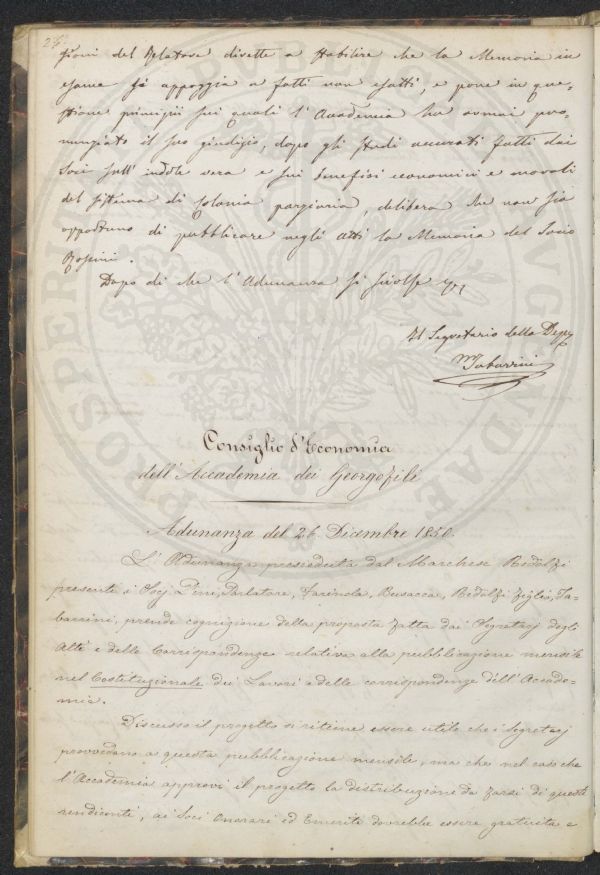 zioni del Relatore dirette a stabilire che la Memoria in
esame si appoggia a fatti non esatti, e pone in que-
stione principii sui quali l'Accademia ha ormai pro-
nunziato il suo giudizio, dopo gli studi accurati fatti dai
Soci sull'indole vera e sui benefizi economici e morali
del sistema di colonia parziaria, delibera che non sia
opportuno di pubblicare negli Atti la Memoria del Socio
Rossini.
Dopo di che l'Adunanza si sciolse
Il Segretario della Dep.
M Tabarrini
Consiglio d'Economia
dell'Accademia dei Georgofili
Adunanza del 26 Dicembre 1850.
L'Adunanza presieduta dal Marchese Ridolfi
presente i Socj Pini, Parlatore, Farinola, Busacca, Ridolfi figlio, Ta-
barrini, prende cognizione della proposta fatta dai Segretarj degli
Atti e delle Corrispondenze relativa alla pubblicazione mensile
nel Costituzionale dei Lavori e delle corrispondenze dell'Accade-
mia.
Discusso il progetto si ritiene essere utile che i Segretarj
provvedano a questa pubblicazione mensile, ma che nel caso che
l'Accademia approvi il progetto la distribuzione da farsi di questi
rendiconti, ai Soci Onorari ed Emeriti dovrebbe essere gratuita e
PROSPERITATI PUBLICAE AUGENDAE